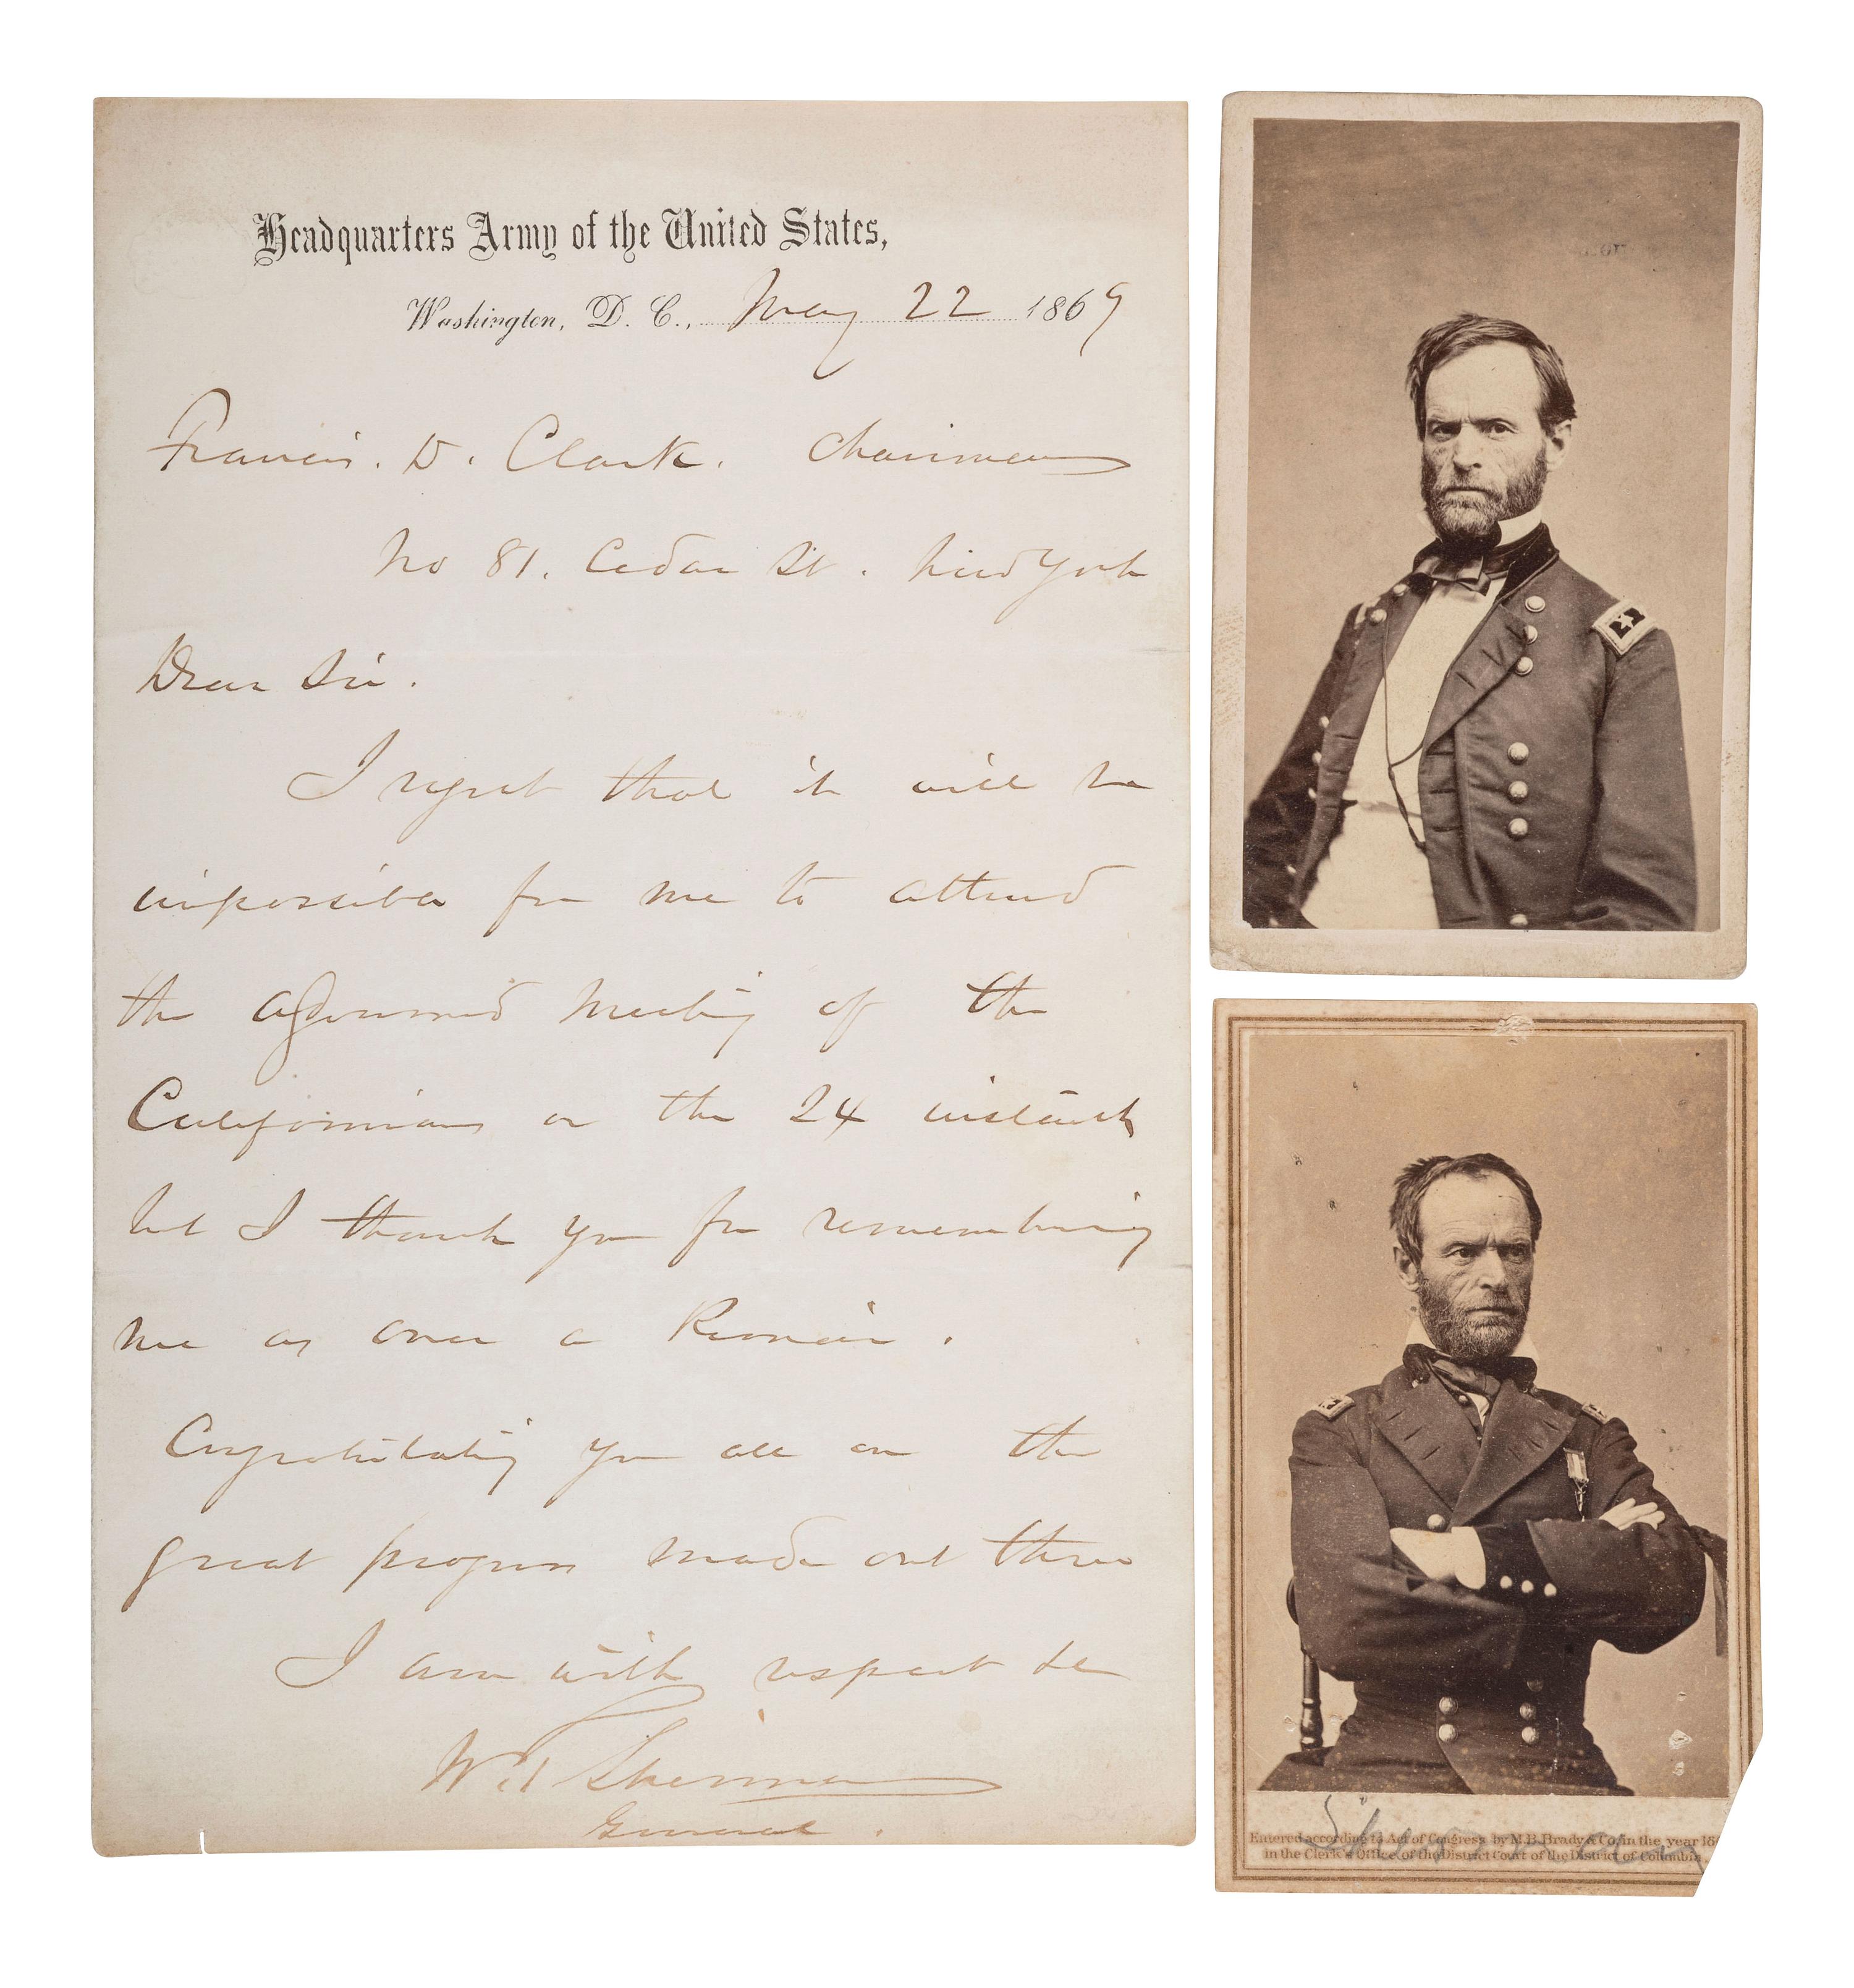 Headquarters Army of the United States,
Washington, D. C., May 22 1869
Francis. D. Clark. Chairman
No 81. Cedar St. New York
Dear Sir.
I regret that it will be
impossible for me to attend
the adjourned meeting of the
Californians on the 24 instant
but I thank you for remembering
me as once a Pioneer.
Congratulating you all on the
great progress made out there
I am with respect &c
W. T. Sherman
General.
Sherman
Entered according to Act of Congress by M.B. Brady & Co, in the year 18
in the Clerk's Office of the District Court of the District of Columbia.